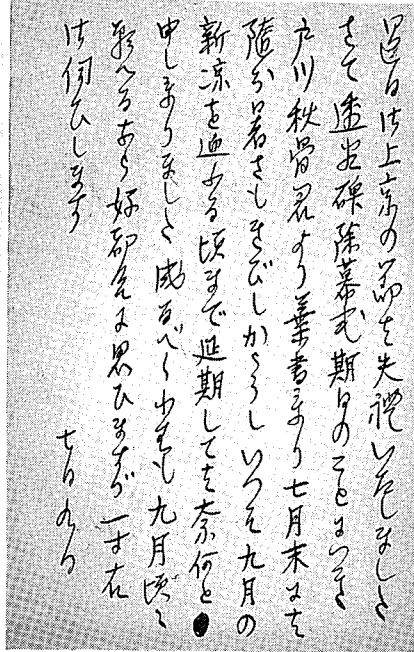 過日は御上京の節は失禮いたしました
さて透谷碑除幕式期日のことにつき
戸川秋骨君より葉書まゐり七月末は
隨分暑さもきびしかるらしいつそ九月の
新凉を迎ふる頃まで延期しては奈何と
申しまゐりました成るべく小生も九月頃に
願へるなら好都合に思ひますが一寸右
御伺ひします
七日